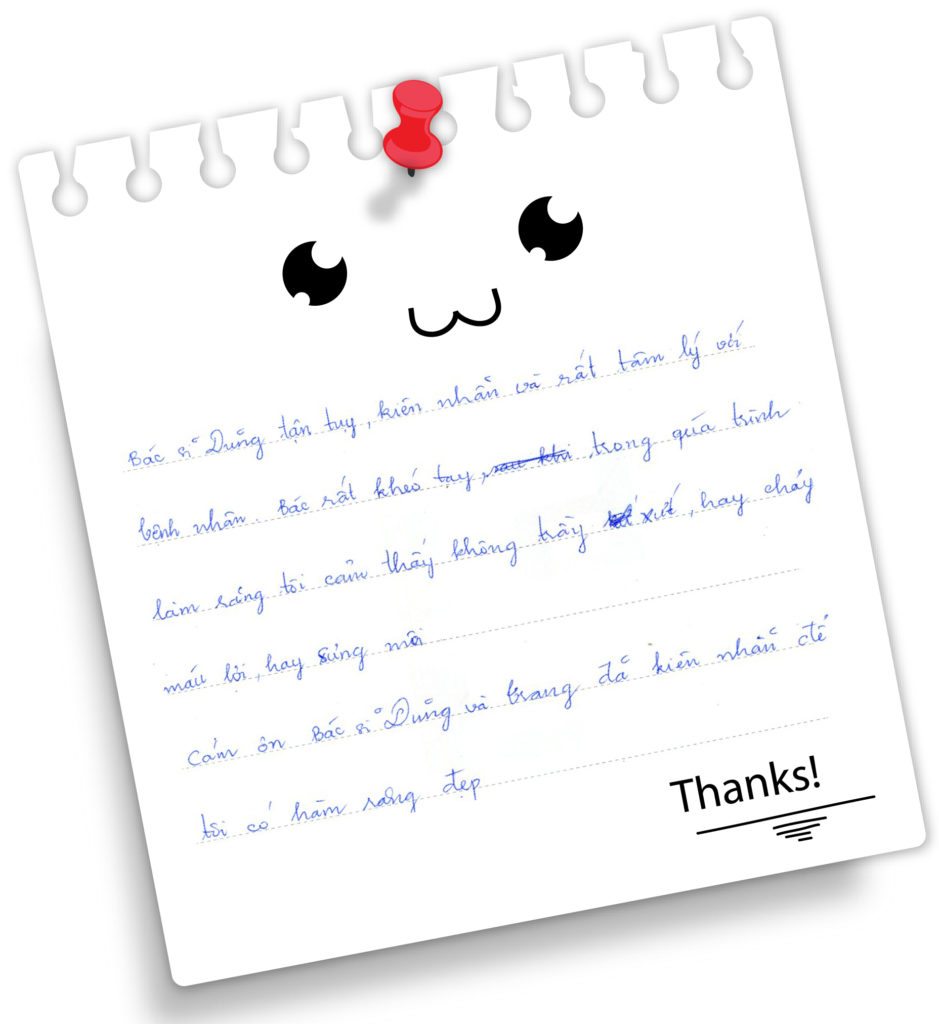 Bác sĩ Dũng tận tuỵ, kiên nhẫn và rất tâm lý với
bệnh nhân. Bác rất khéo tay, trong qúa trình
làm răng tôi cảm thấy không trầy xướt, hay chảy
máu lợi, hay sưng môi
Cám ơn Bác sĩ Dũng và trang đã kiên nhẫn để
tôi có hàm răng đẹp
Thanks!